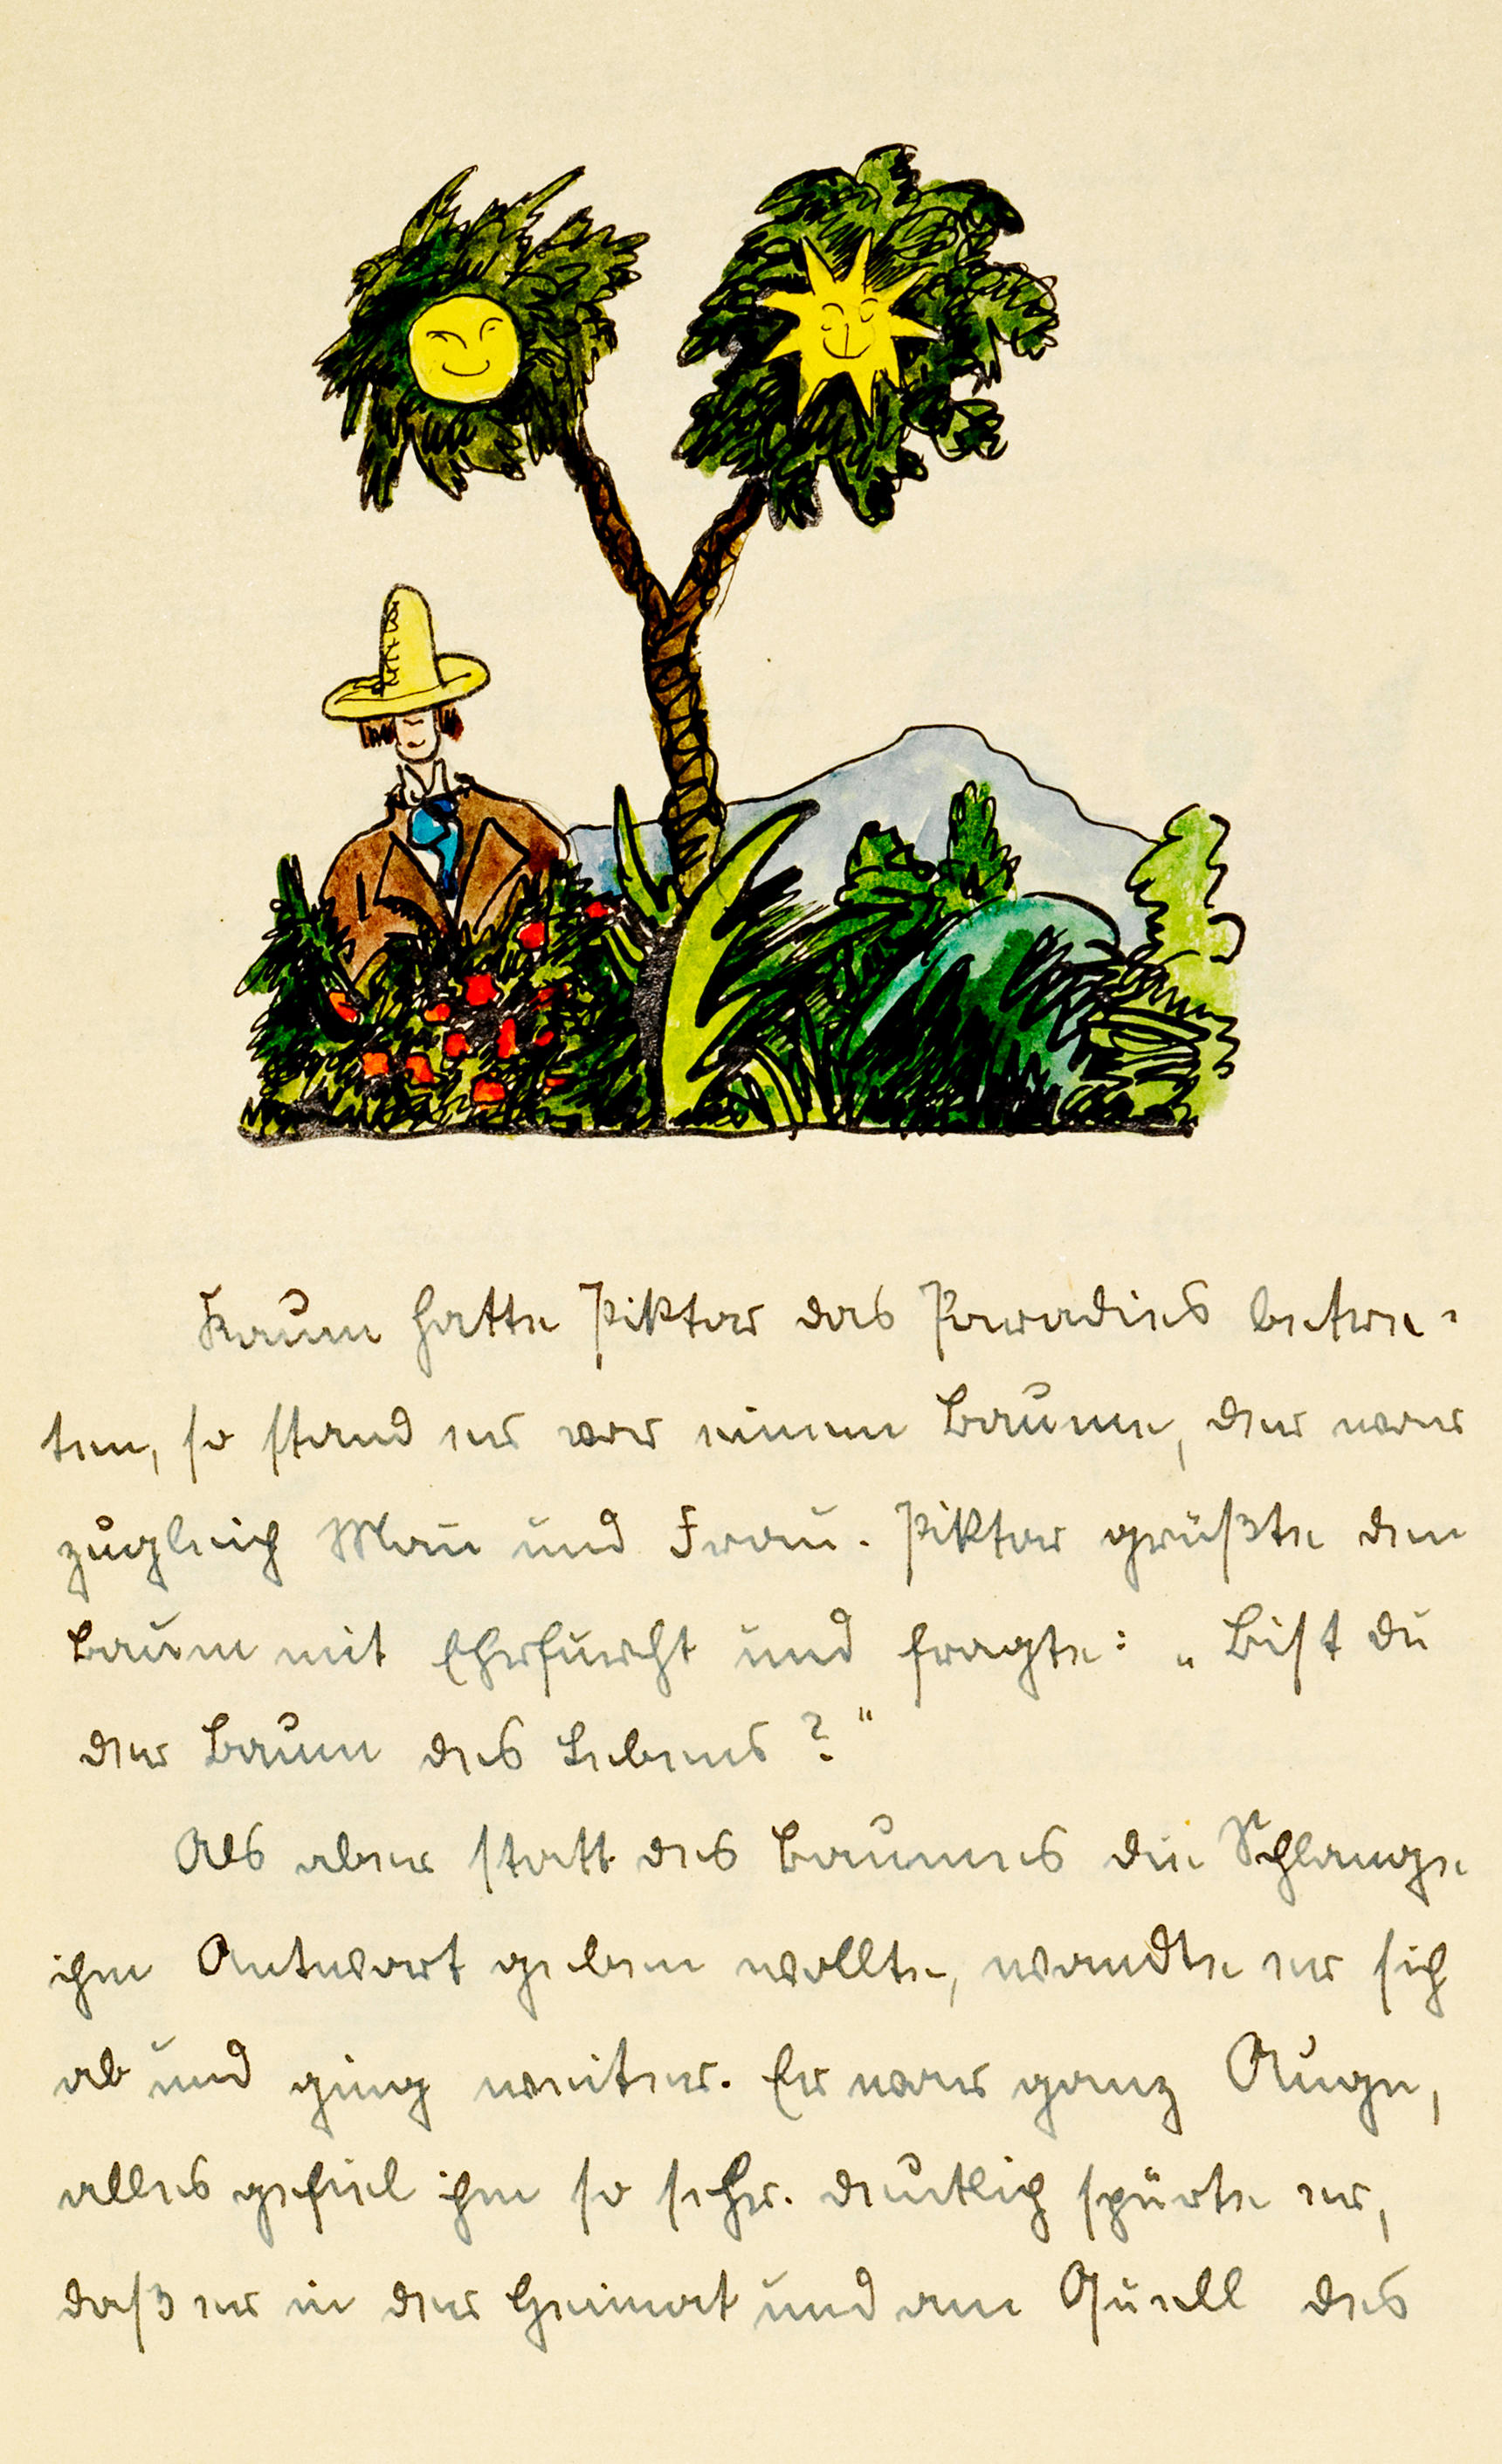 Kaum hatte Piktor das Paradies betre-
ten, so stand er vor einem Baume, der war
zugleich Mañ und Frau. Piktor grüßte den
Baum mit Ehrfurcht und fragte: „Bist du
der Baum des Lebens?"
Als aber statt des Baumes die Schlange
ihm Antwort geben wollte, wandte er sich
ab und ging weiter. Er war ganz Auge,
alles gefiel ihm so sehr. Deutlich spürte er,
daß er in der Heimat und am Quell des